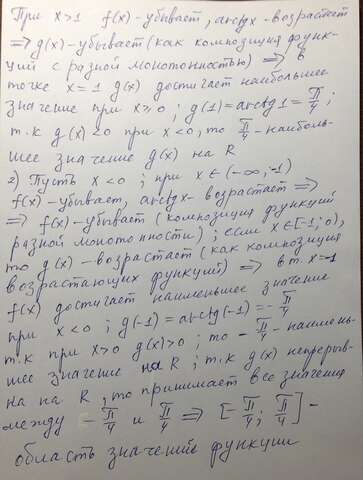 При x>1 f(x)-убывает, arctgx-возрастает
⇒ g(x)-убывает (как композиция функ-
ций с разной монотонностью) ⇒ в
точке x=1 g(x) достигает наибольшее
значение при x≥0; g(1)=arctg1=π/4;
т.к g(x)<0 при x<0, то π/4-наиболь-
шее значение g(x) на R
2) Пусть x<0; при x∈(-∞;-1)
f(x)-убывает, arctgx-возрастает ⇒
⇒ f(x)-убывает (композиция функций
разной монотонности); если x∈[-1;0),
то g(x)-возрастает (как композиция
возрастающих функций) ⇒ в т. x=-1
f(x) достигает наименьшее значение
при x<0; g(-1)=arctg(-1)=-π/4
т.к при x>0 g(x)>0; то -π/4-наимень-
шее значение на R; т.к g(x) непрерыв-
на на R, то принимает все значения
между -π/4 и π/4 ⇒ [-π/4; π/4]-
область значений функции